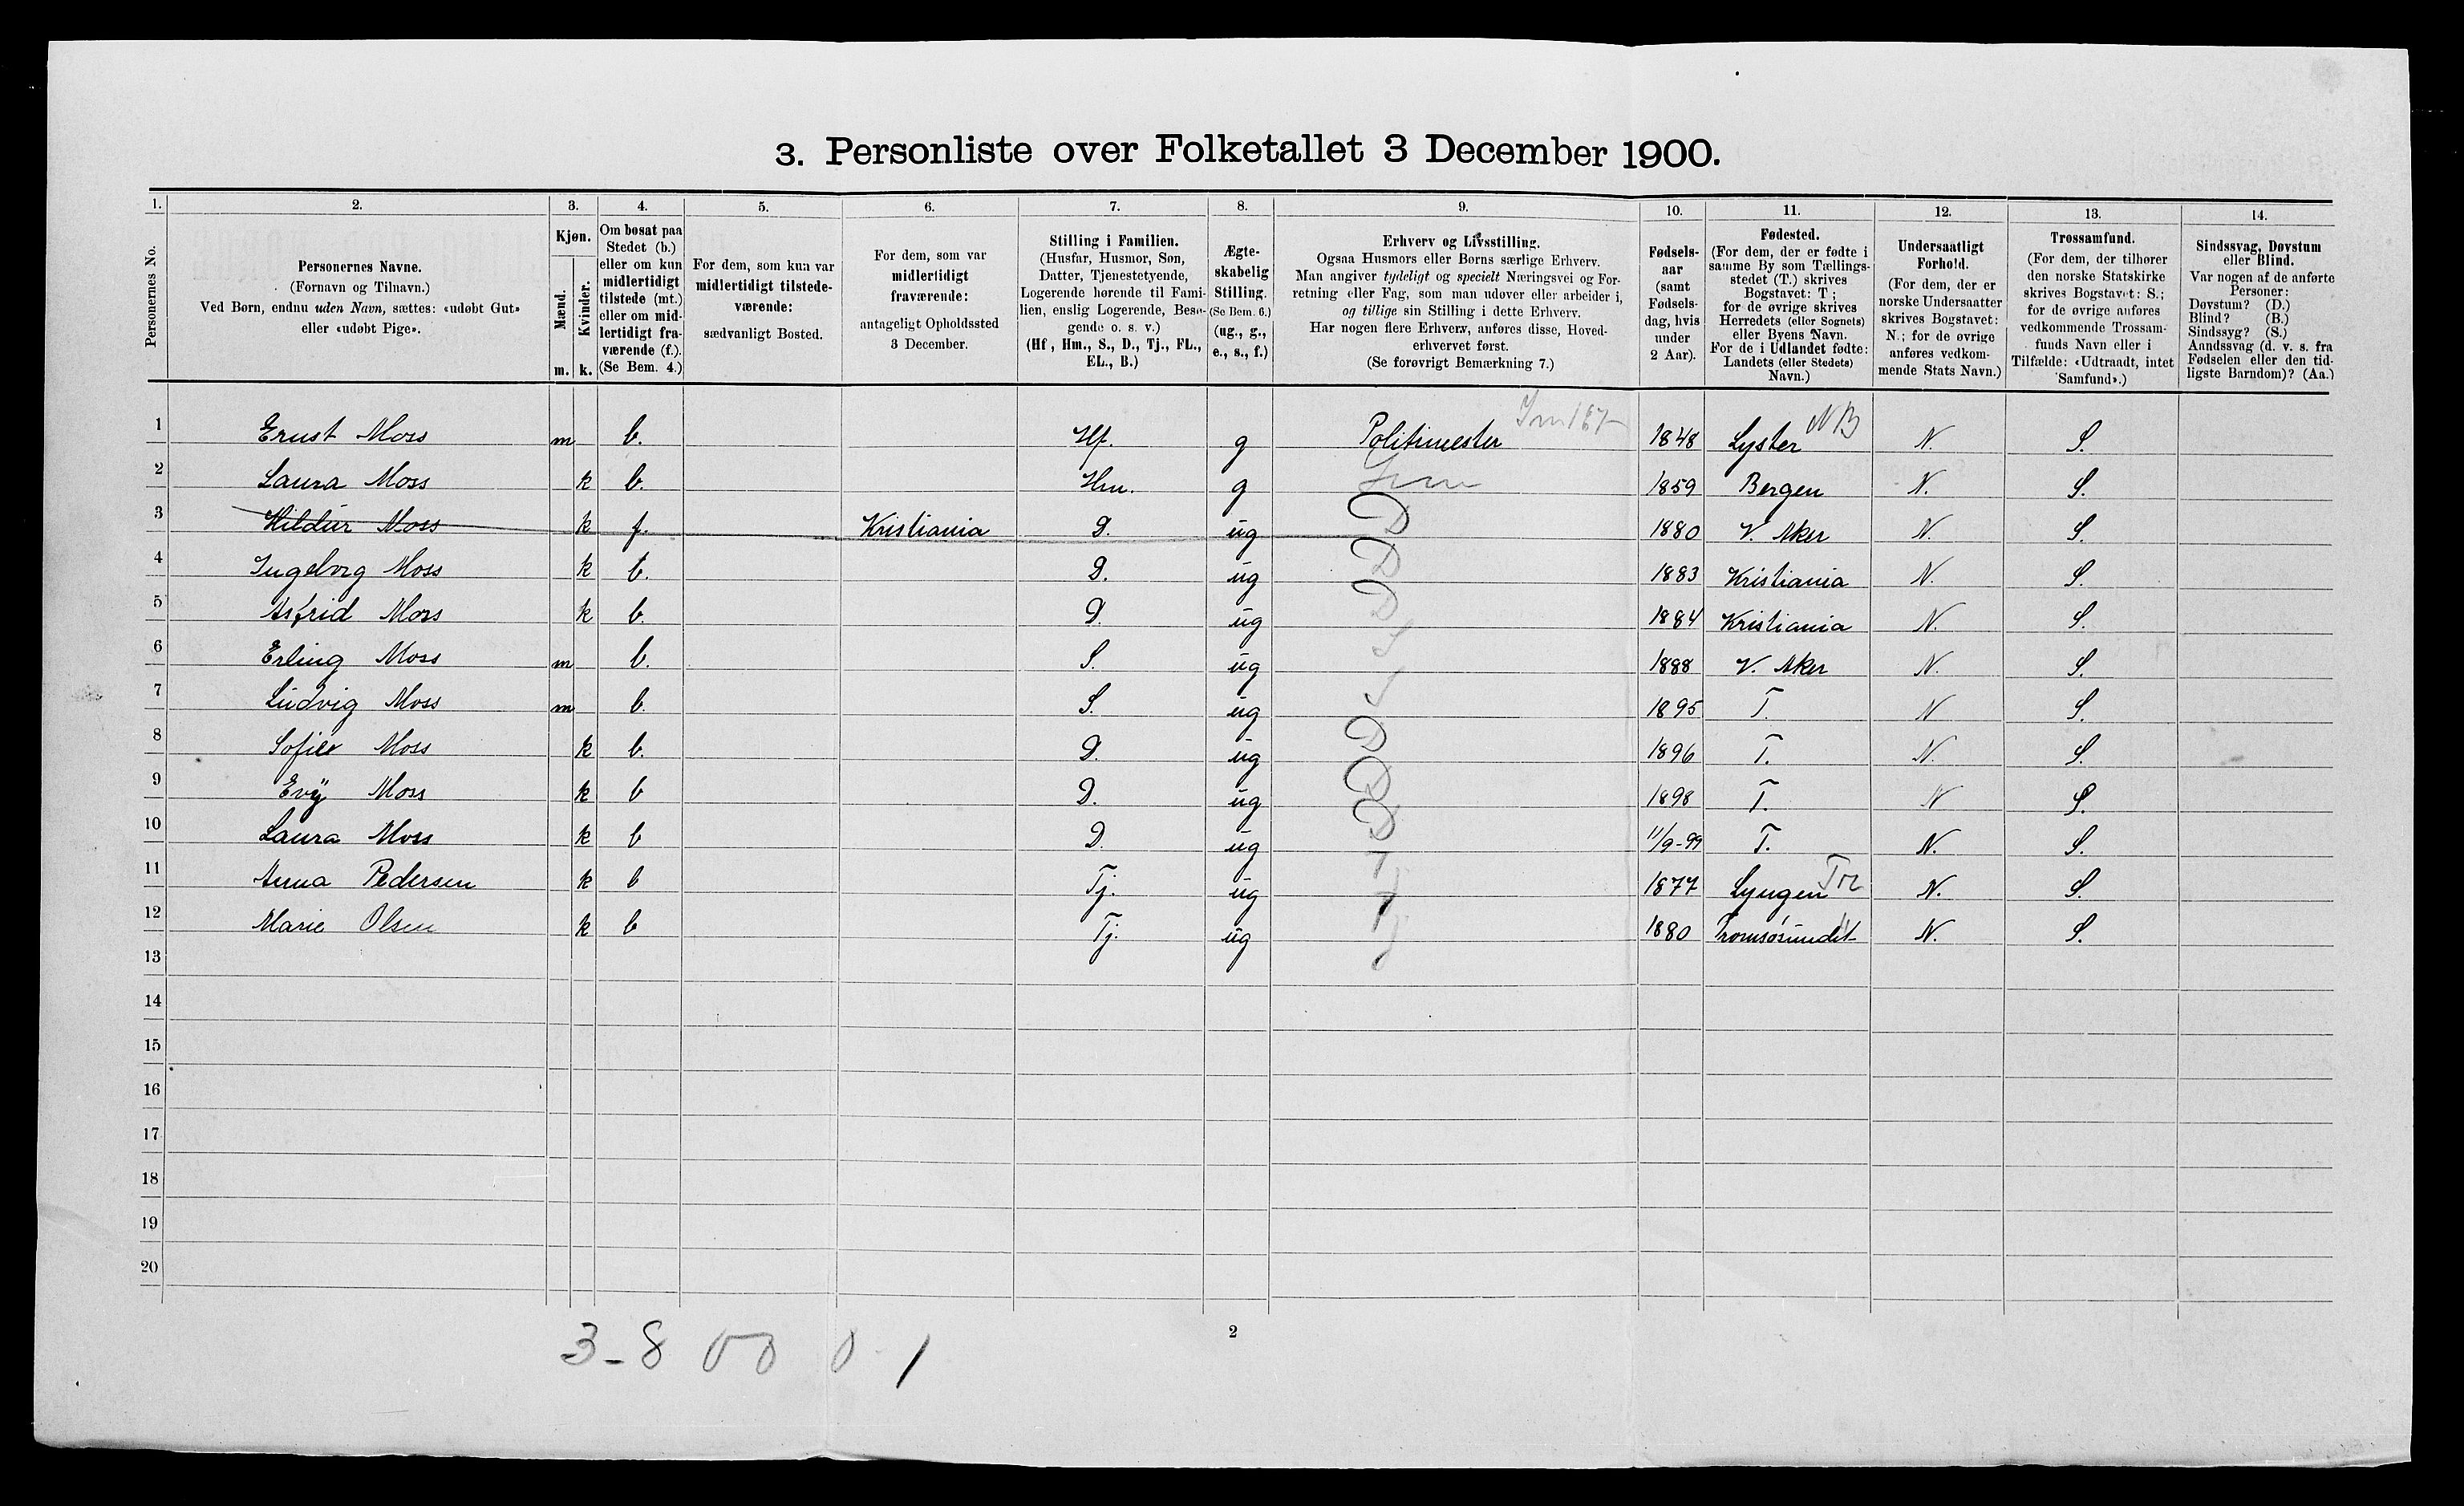 3. Personliste over Folketallet 3 December 1900.
1. 2. 3. 4. 5. 6. 7. 8. 9. 10. 11. 12. 13. 14.
Personernes No.
Personernes Navne.
(Fornavn og Tilnavn.)
Ved Børn, endnu uden Navn, sættes: «udøbt Gut»
eller «udøbt Pige».
Kjøn.
Mænd.
Kvinder.
m. k.
Om bosat paa
Stedet (b.)
eller om kun
midlertidigt
tilstede (mt.)
eller om mid-
lertidigt fra-
værende (f.).
(Se Bem. 4.)
For dem, som kun var
midlertidigt tilstede-
værende:
sædvanligt Bosted.
For dem, som var
midlertidigt
fraværende:
antageligt Opholdssted
3 December.
Stilling i Familien.
(Husfar, Husmor, Søn,
Datter, Tjenestetyende,
Logerende hørende til Fami-
lien, enslig Logerende, Besø-
gende o. s. v.)
(Hf, Hm., S., D., Tj., FL.,
EL., B.)
Ægte-
skabelig
Stilling.
(Se Bem. 6.)
(ug., g.,
e., s., f.)
Erhverv og Livsstilling.
Ogsaa Husmors eller Børns særlige Erhverv.
Man angiver tydeligt og specielt Næringsvei og For-
retning eller Fag, som man udøver eller arbeider i,
og tillige sin Stilling i dette Erhverv.
Har nogen flere Erhverv, anføres disse, Hoved-
erhvervet først.
(Se forøvrigt Bemærkning 7.)
Fødsels-
aar
(samt
Fødsels-
dag, hvis
under
2 Aar).
Fødested.
(For dem, der er fødte i
samme By som Tællings-
stedet (T.) skrives
Bogstavet: T;
for de øvrige skrives
Herredets (eller Sognets)
eller Byens Navn.
For de i Udlandet fødte:
Landets (eller Stedets)
Navn.)
Undersaatligt
Forhold.
(For dem, der er
norske Undersaatter
skrives Bogstavet:
N.; for de øvrige
anføres vedkom-
mende Stats Navn.)
Trossamfund.
(For dem, der tilhører
den norske Statskirke
skrives Bogstavet: S.;
for de øvrige anføres
vedkommende Trossam-
funds Navn eller i
Tilfælde: «Udtraadt, intet
Samfund».)
Sindssvag, Døvstum
eller Blind.
Var nogen af de anførte
Personer:
Døvstum? (D.)
Blind? (B.)
Sindssyg? (S.)
Aandssvag (d. v. s. fra
Fødselen eller den tid-
ligste Barndom)? (Aa.)
1 Ernst Moss m b. Hf. g Politimester 1848 Lyster NB N. S.
2 Laura Moss k b. Hm. g 1859 Bergen N. S.
3 Hildur Moss k f. Kristiania D. ug D 1880 V. Aker N. S.
4 Ingeborg Moss k b. D. ug D 1883 Kristiania N. S.
5 Astrid Moss k b. D. ug D 1884 Kristiania N. S.
6 Erling Moss m b. S. ug S 1888 V. Aker N. S.
7 Ludvig Moss m b. S. ug S 1895 T. N S.
8 Sofie Moss k b. D. ug D 1896 T. N. S.
9 Evy Moss k b D. ug D 1898 T. N S.
10 Laura Moss k b D. ug D 11/9-99 T. N. S.
11 Anna Pedersen k b Tj. ug Tj 1877 Lyngen Tr N. S.
12 Marie Olsen k b Tj. ug Tj 1880 Tromsøsundet N. S.
13
14
15
16
17
18
19
20
2
3-8 0 0 0 1